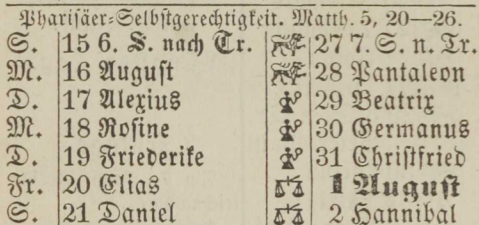 Pharisäer-Selbstgerechtigkeit. Matth. 5, 20—26.
S. 15 6. S. nach Tr. 27 7. S. n. Tr.
M. 16 August 28 Pantaleon
D. 17 Alexius 29 Beatrix
M. 18 Rosine 30 Germanus
D. 19 Friederike 31 Christfried
Fr. 20 Elias 1 August
S. 21 Daniel 2 Hannibal